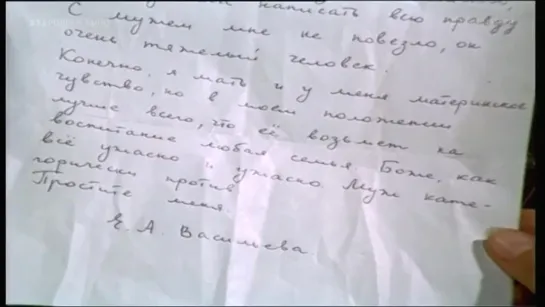 написать всю правду
С мужем мне не повезло, он
очень тяжелый человек.
Конечно, я мать и у меня материнское
чувство, но в моем положении
лучше всего, что её возьмет на
воспитание любая семья. Боже, как
всё ужасно, ужасно. Муж кате-
горически против
Простите меня.
А. Васильева